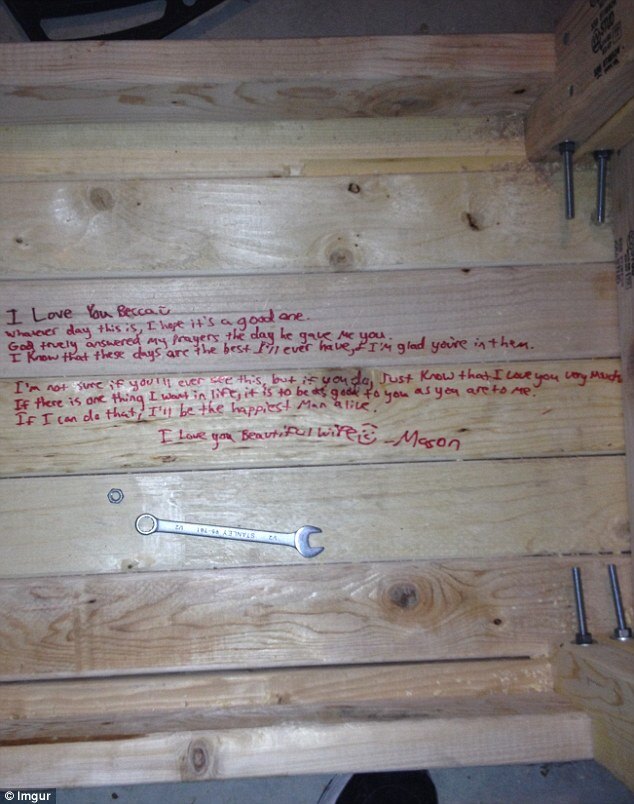 I Love You Becca
whatever day this is, I hope it's a good one.
God truely answered my prayers the day he gave me you.
I know that these days are the best I'll ever have, & I'm glad you're in them.
I'm not sure if you'll ever see this, but if you do, Just know that I love you very much.
If there is one thing I want in life, it is to be as good to you as you are to me.
If I can do that, I'll be the happiest man alive.
I love you Beautiful wife -Mason
1/2 STANLEY 1/2
STUD
© Imgur